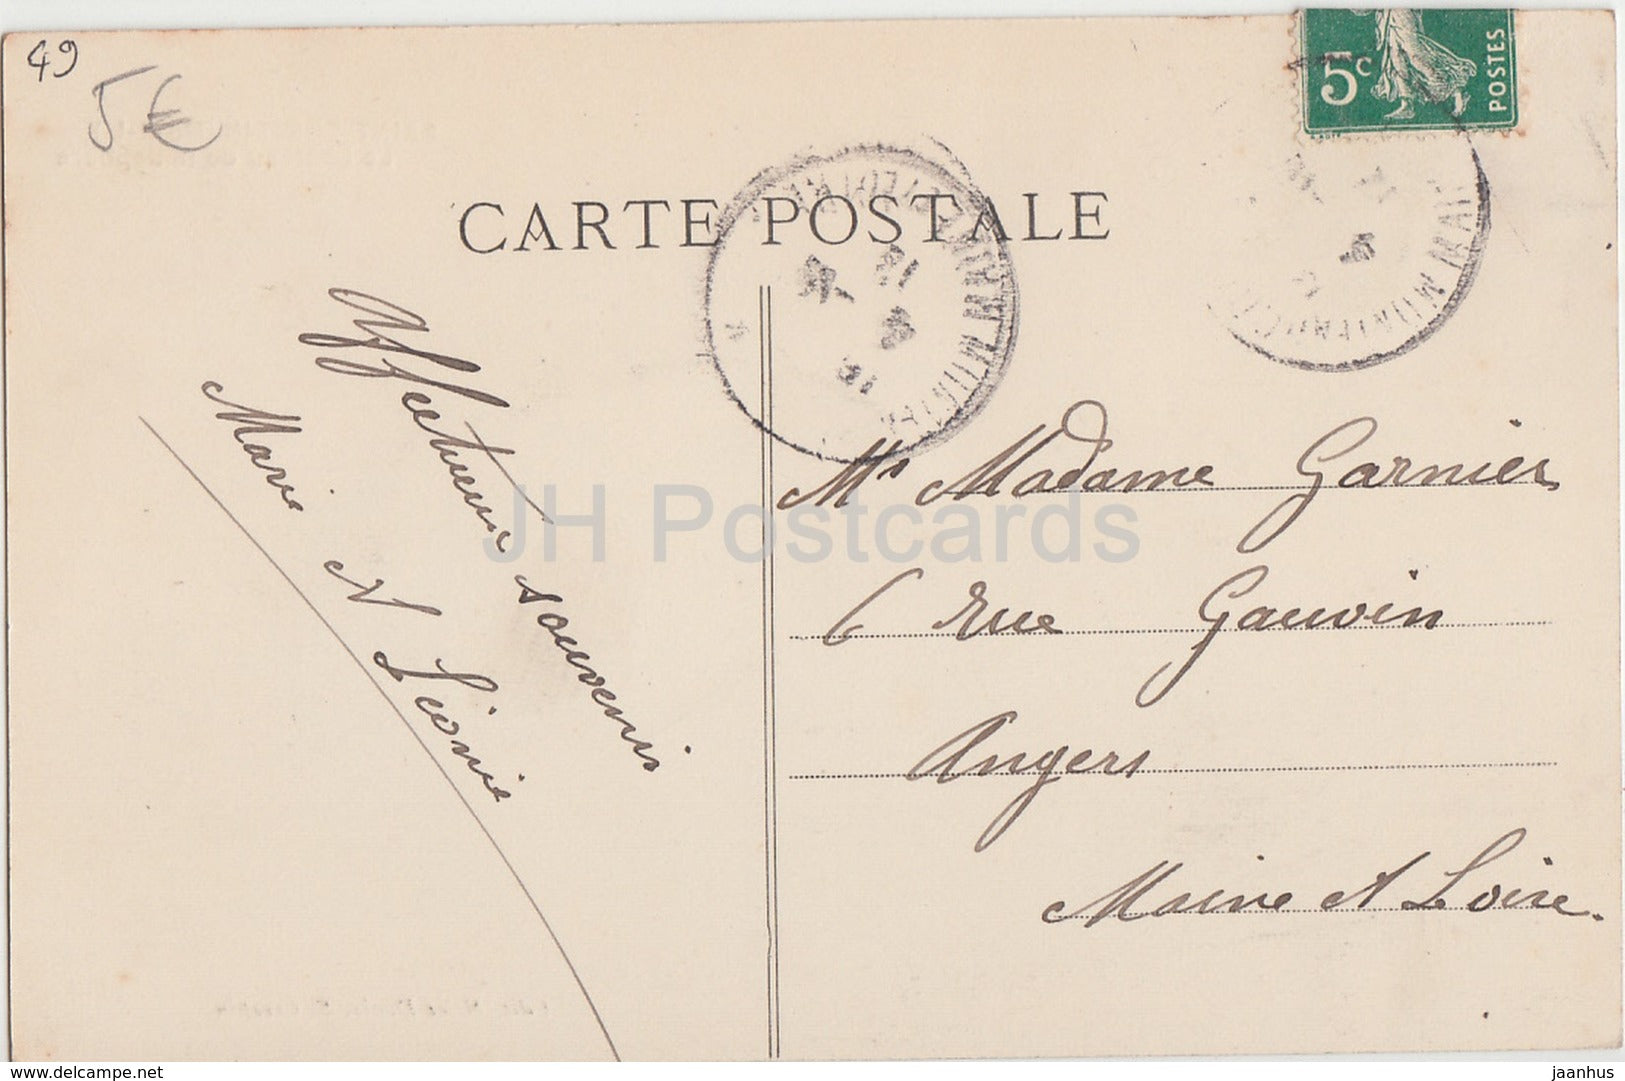 49
5€
5c
POSTES
CARTE POSTALE
Affectueux souvenir
Marie et Léonie
Mr Madame Garnier
6 rue Gauvin
Angers
Maine et Loire.
JH Postcards
delcampe.net
jaanhus